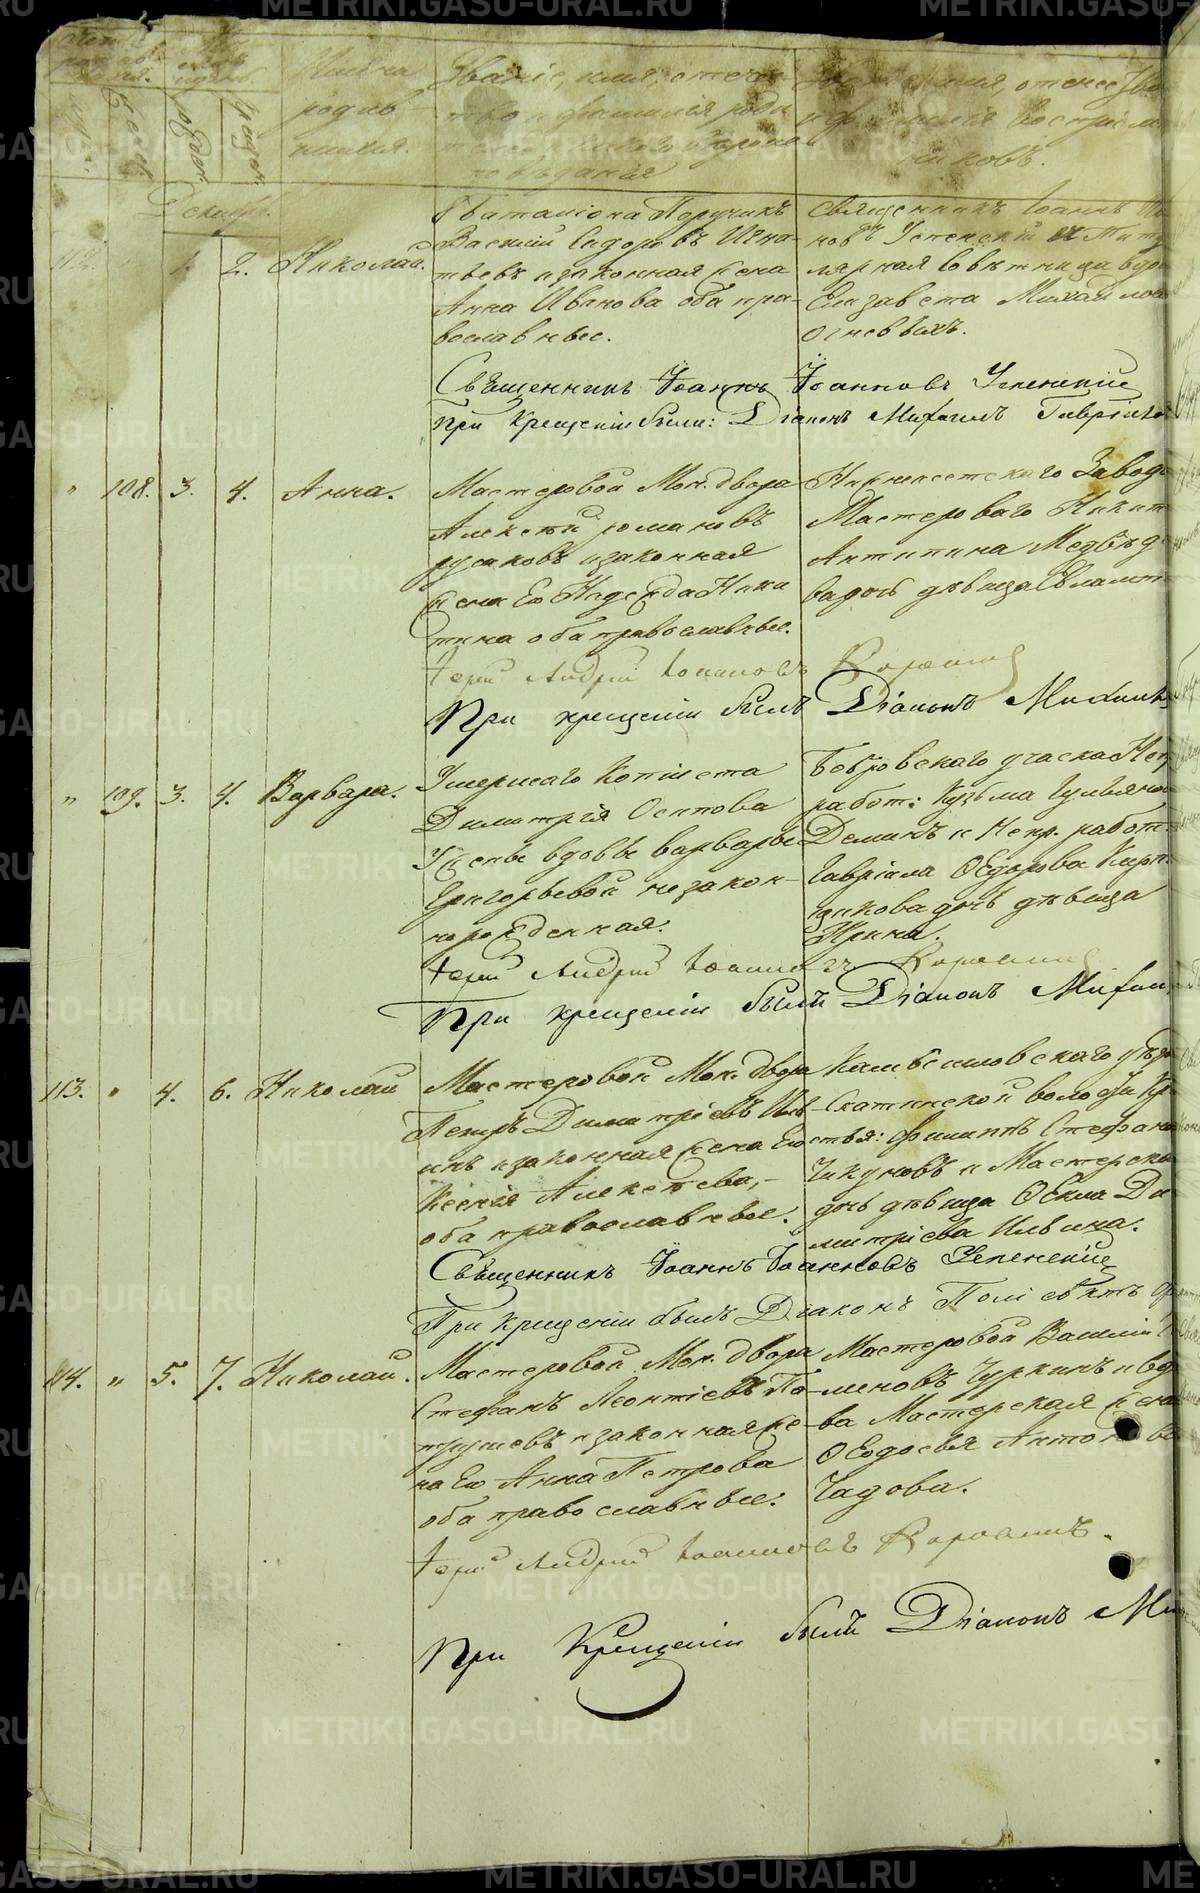 Счетъ
Имена
родив
шихся.
Званіе, имя, отече-
ство и фамилія роди
вѣданія
имя, отечество
и фамилія воспріем
никовъ.
Декабрь.
112. 1. 2. Николай.
баталіона Поручикъ
Василій Сидоровъ Игна-
тьевъ и законная жена
Анна Иванова оба пра-
вославные.
Священникъ Іоаннъ Іо
новъ Успенскій и Титу
лярная Совѣтница вдова
Елизавета Михайлова
Огневыхъ.
Священникъ Іоаннъ Іоанновъ Успенскій
При Крещеніи были: Діаконъ Михаилъ Гавріиловъ
" 108. 3. 4. Анна.
Мастеровой Мон. двора
Алексѣй Романовъ
Русаковъ и законная
жена Его Надежда Ники
тина оба православные.
Нижнеисетскаго Завода
Мастероваго Никиты
Антипина Медвѣде
ва дочь дѣвица
Іерей Андрей Іоанновъ Коровинъ
При крещеніи былъ Діаконъ Михаилъ
" 109. 3. 4. Варвара.
Умершаго
Димитрія Осипова
жены вдовы Варвары
Григорьевой незакон-
норожденная.
Бобровскаго участка Неп
работ: Кузьма
Деминъ и Непр. работ:
Гавріила Ѳедорова Кирп.
щикова дочь дѣвица
Ирина.
Іерей Андрей Іоанновъ Коровинъ
При крещеніи былъ Діаконъ Михаилъ
113. " 4. 6. Николай
Мастеровой Мон. двора
Петръ Димитріевъ Иль-
инъ и законная жена Его
Ксенія Алексѣева,-
оба православные.
Камышловскаго уѣзда
Скатинской волости Кр-
стья: Филиппъ Стефано
Чикуновъ и Мастерска
дочь дѣвица Ѳекла Ди
митріева Ильина.
Священникъ Іоаннъ Іоанновъ Успенскій
При крещеніи былъ Діаконъ
114. " 5. 7. Николай.
Мастеровой Мон. двора
Стефанъ Леонтіевъ Па-
трушевъ и законная же-
на Его Анна Петрова
оба православные.
Мастеровой Василій
меновъ Чуркинъ и вдо
ва Мастерская жена
Ѳеодосья Антонова
Чадова.
Іерей Андрей Іоанновъ Коровинъ.
При Крещеніи былъ Діаконъ Ми
METRIKI.GASO-URAL.RU